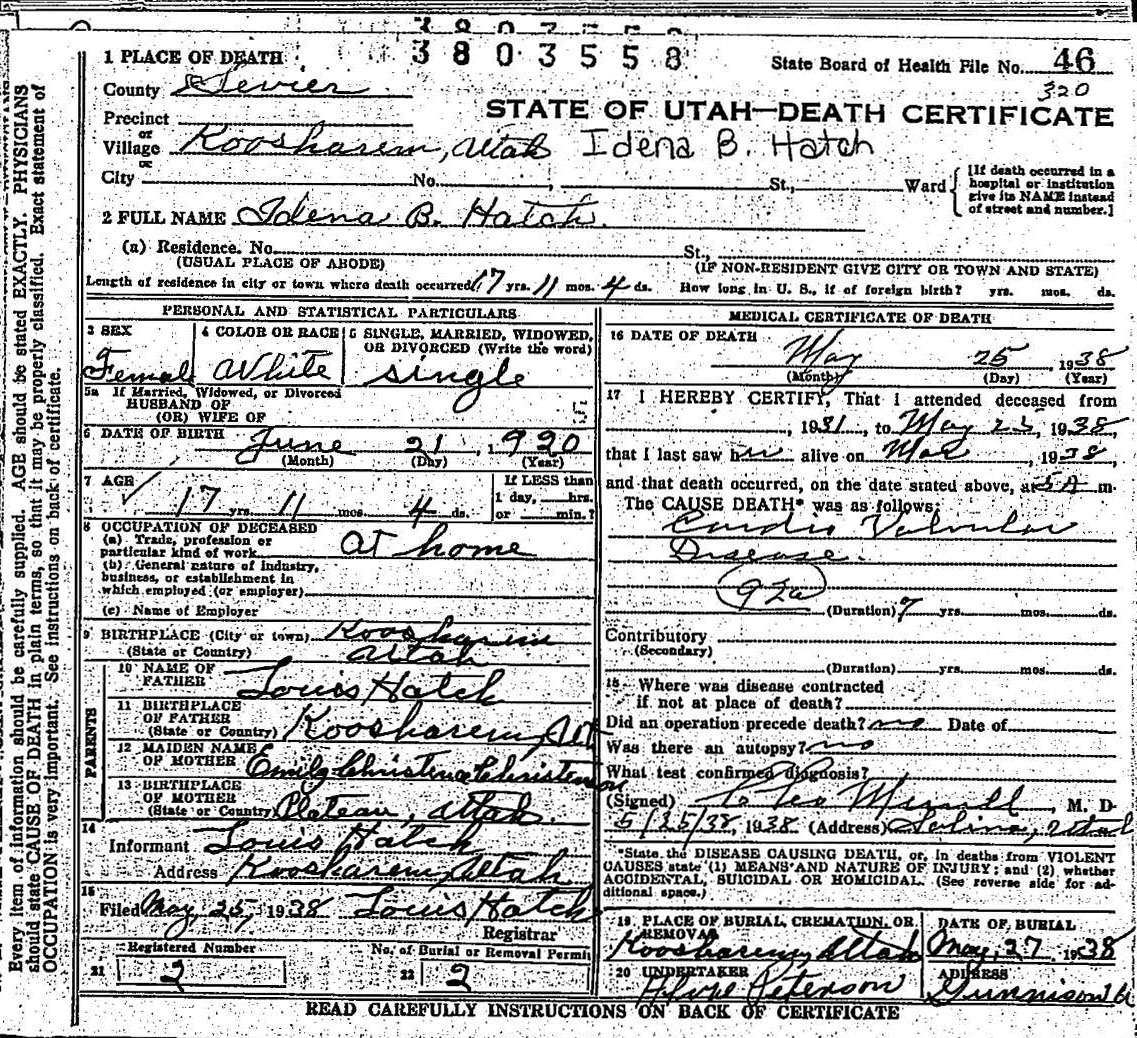 3803558
1 PLACE OF DEATH
State Board of Health File No. 46
County Sevier
320
STATE OF UTAH—DEATH CERTIFICATE
Precinct
or
Village Koosharem, Utah Idena B. Hatch
or
City No. St., Ward
[If death occurred in a
hospital or institution
give its NAME instead
of street and number.]
2 FULL NAME Idena B. Hatch
(a) Residence. No. St.,
(USUAL PLACE OF ABODE) (IF NON-RESIDENT GIVE CITY OR TOWN AND STATE)
Length of residence in city or town where death occurred 17 yrs. 11 mos. 4 ds. How long in U. S., if of foreign birth? yrs. mos. ds.
PERSONAL AND STATISTICAL PARTICULARS
3 SEX
Female
4 COLOR OR RACE
White
5 SINGLE, MARRIED, WIDOWED,
OR DIVORCED (Write the word)
single
5a If Married, Widowed, or Divorced
HUSBAND OF
(OR) WIFE OF
5
6 DATE OF BIRTH June 21, 1920
(Month) (Day) (Year)
7 AGE
17 yrs. 11 mos. 4 ds.
If LESS than
1 day, hrs.
or min.?
8 OCCUPATION OF DECEASED
(a) Trade, profession or
particular kind of work At home
(b) General nature of industry,
business, or establishment in
which employed (or employer)
(c) Name of Employer
9 BIRTHPLACE (City or town) Koosharem
(State or Country) Utah
PARENTS
10 NAME OF
FATHER Louis Hatch
11 BIRTHPLACE
OF FATHER
(State or Country) Koosharem, Utah
12 MAIDEN NAME
OF MOTHER Emily Christena Christenson
13 BIRTHPLACE
OF MOTHER
(State or Country) Plateau, Utah.
14
Informant Louis Hatch
Address Koosharem, Utah
15
Filed May, 25, 1938 Louis Hatch
Registrar
Registered Number
21 2
No. of Burial or Removal Permit
22 2
MEDICAL CERTIFICATE OF DEATH
16 DATE OF DEATH
May 25, 1938
(Month) (Day) (Year)
17 I HEREBY CERTIFY, That I attended deceased from
, 1931, to May 25, 1938
that I last saw her alive on May, 1938,
and that death occurred, on the date stated above, at 5 A m.
The CAUSE DEATH* was as follows:
Cardio Valvular
Disease.
92a
(Duration) 7 yrs. mos. ds.
Contributory
(Secondary)
(Duration) yrs. mos. ds.
18 Where was disease contracted
if not at place of death?
Did an operation precede death? no Date of
Was there an autopsy? no
What test confirmed diagnosis?
(Signed) Leo Merrill, M. D.
5/25/38, 1938 (Address) Salina, Utah
*State the DISEASE CAUSING DEATH, or, in deaths from VIOLENT
CAUSES state (1) MEANS AND NATURE OF INJURY; and (2) whether
ACCIDENTAL, SUICIDAL OR HOMICIDAL. (See reverse side for ad-
ditional space.)
19 PLACE OF BURIAL, CREMATION, OR
REMOVAL
Koosharem, Utah
DATE OF BURIAL
May, 27 1938
20 UNDERTAKER
Peterson
ADDRESS
Gunnison U
READ CAREFULLY INSTRUCTIONS ON BACK OF CERTIFICATE
Every item of information should be carefully supplied. AGE should be stated EXACTLY. PHYSICIANS
should state CAUSE OF DEATH in plain terms, so that it may be properly classified. Exact statement of
OCCUPATION is very important. See instructions on back of certificate.